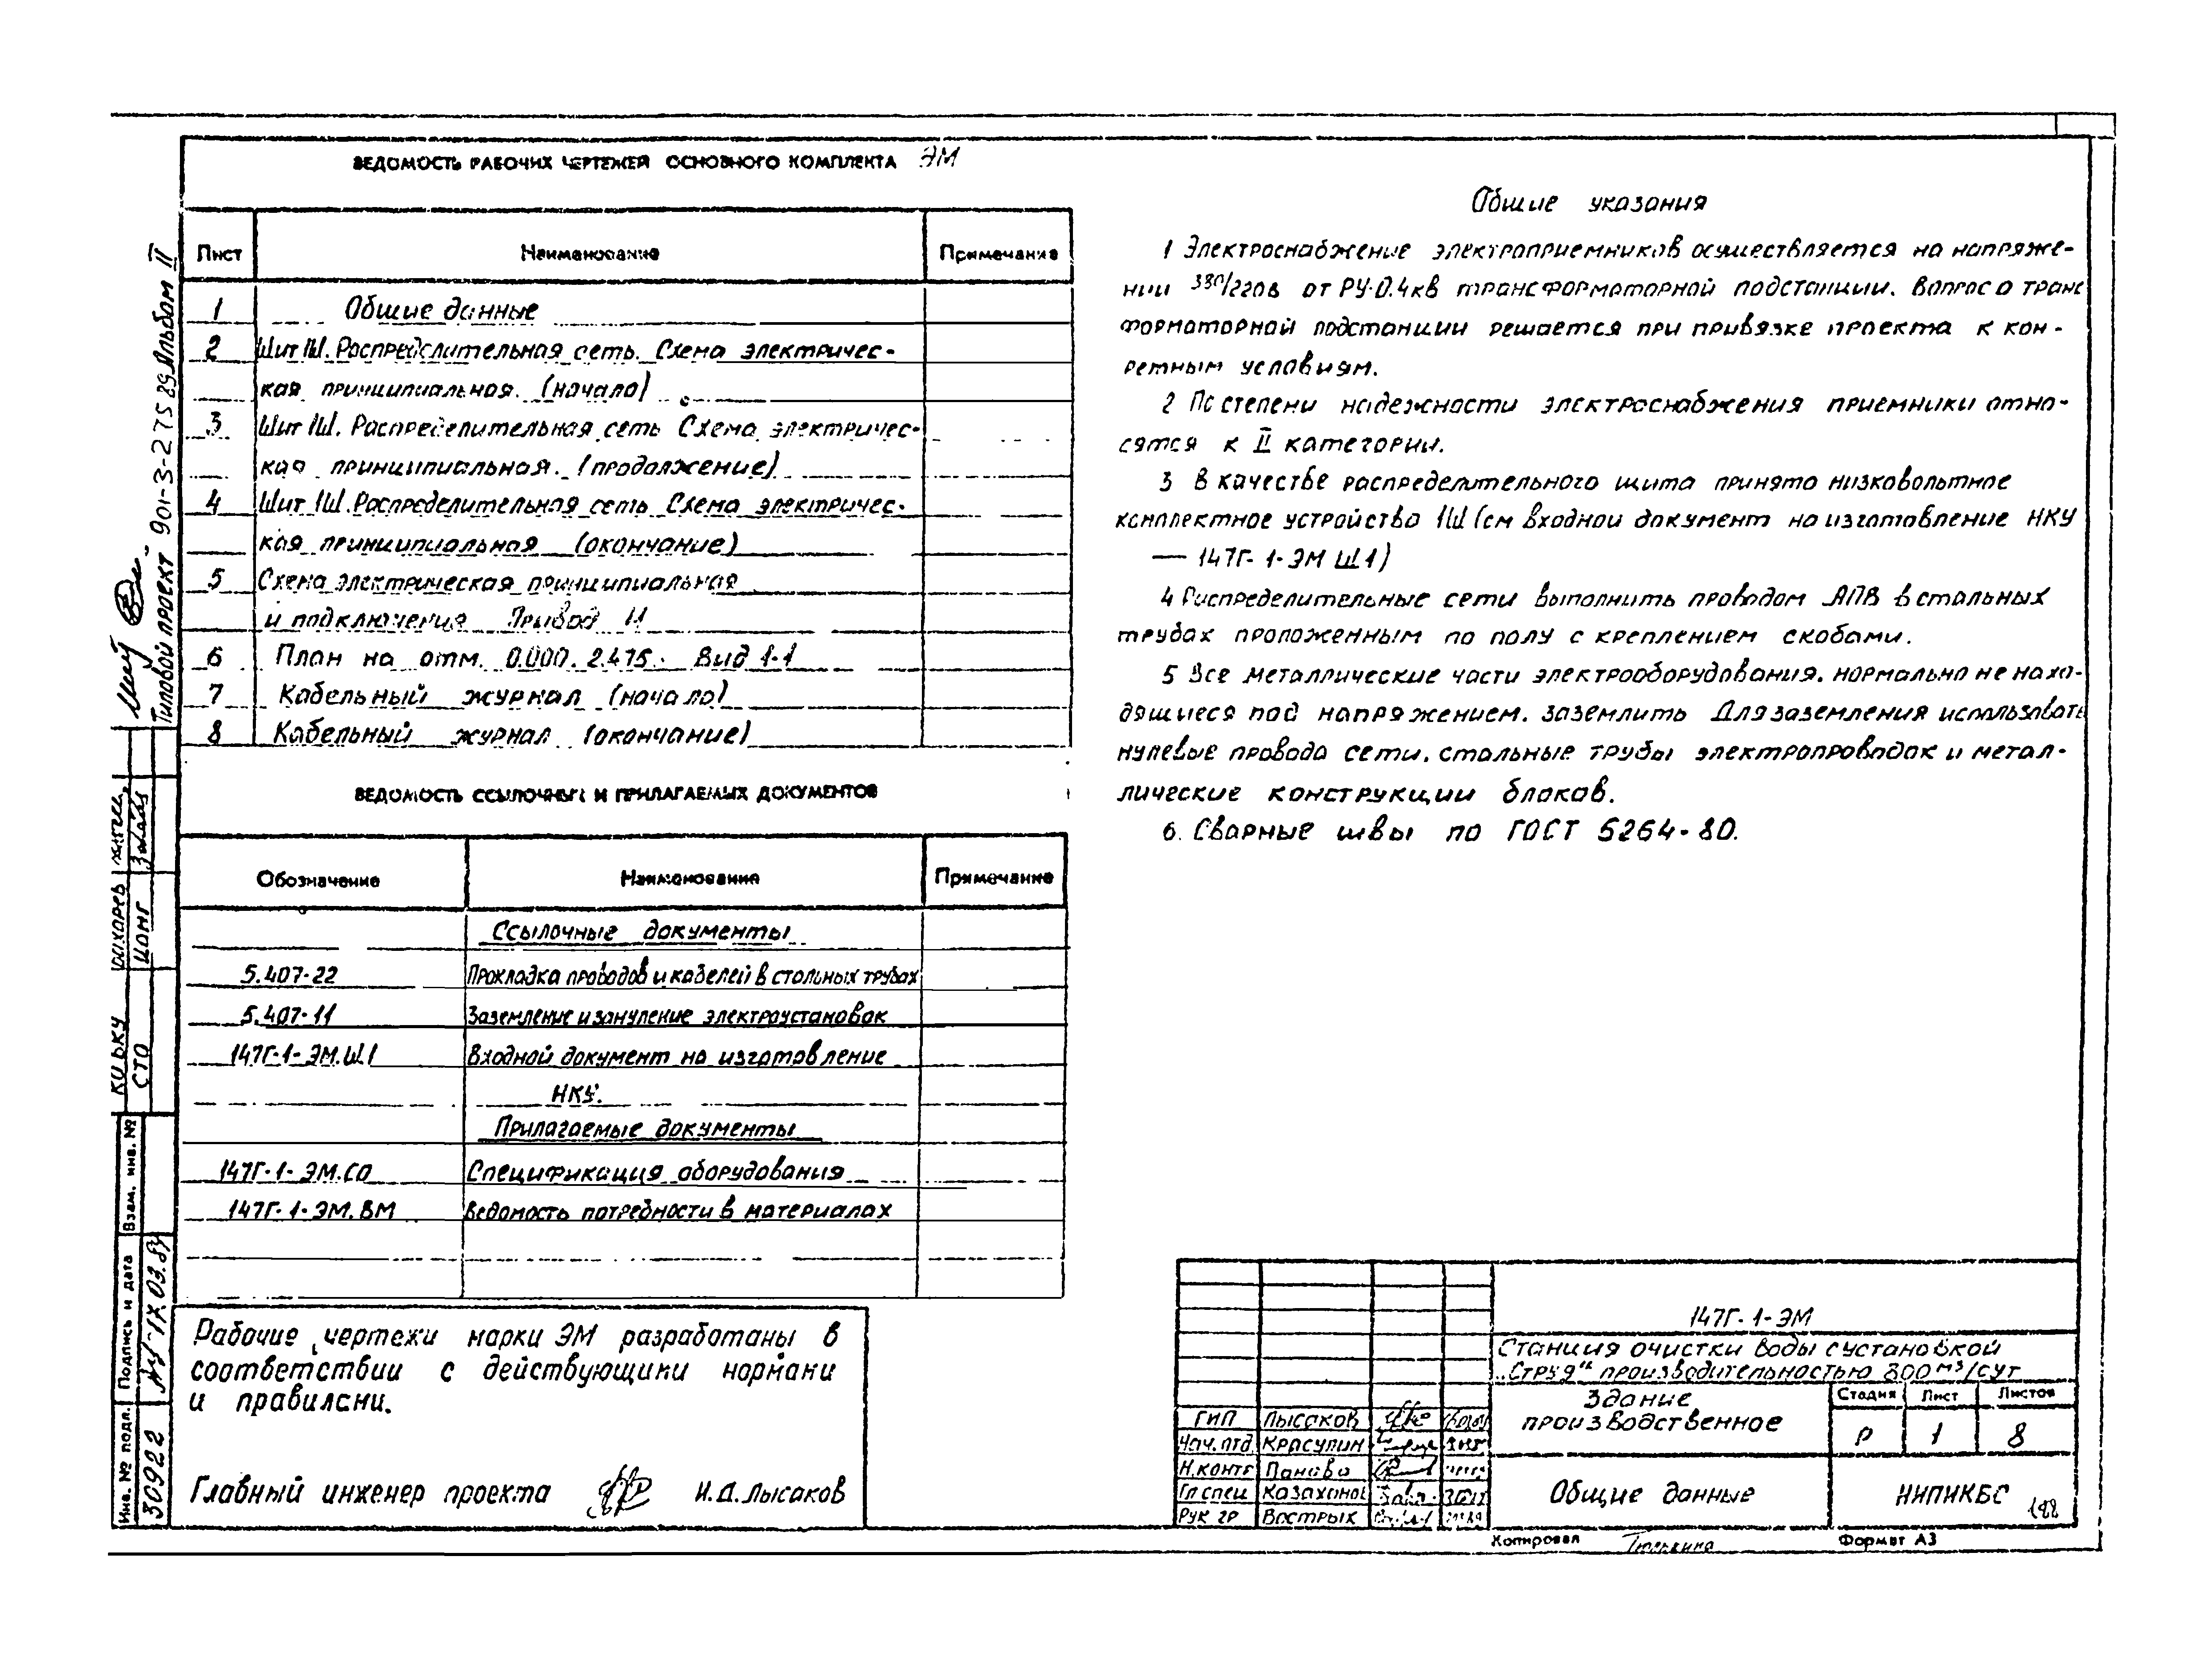 ВЕДОМОСТЬ РАБОЧИХ ЧЕРТЕЖЕЙ ОСНОВНОГО КОМПЛЕКТА ЭМ
Лист Наименование Примечание
1 Общие данные
2 Щит 1Щ. Распределительная сеть. Схема электричес-
кая принципиальная. (начало)
3 Щит 1Щ. Распределительная сеть Схема электричес-
кая принципиальная. (продолжение)
4 Щит 1Щ. Распределительная сеть Схема электричес-
кая принципиальная (окончание)
5 Схема электрическая принципиальная
и подключения Привод
6 План на отм. 0.000. 2.475. Вид 1-1
7 Кабельный журнал (начало)
8 Кабельный журнал (окончание)
ВЕДОМОСТЬ ССЫЛОЧНЫХ И ПРИЛАГАЕМЫХ ДОКУМЕНТОВ
Обозначение Наименование Примечание
Ссылочные документы
5.407-22 Прокладка проводов и кабелей в стальных трубах
5.407-11 Заземление и зануление электроустановок
147Г-1-ЭМ.Щ1 Входной документ на изготовление
НКУ.
Прилагаемые документы
147Г-1-ЭМ.СО Спецификация оборудования
147Г-1-ЭМ.ВМ Ведомость потребности в материалах
Рабочие чертежи марки ЭМ разработаны в
соответствии с действующими нормами
и правилами.
Главный инженер проекта И.Д.Лысаков
Общие указания
1 Электроснабжение электроприемников осуществляется на напряже-
нии 380/220в от РУ-0.4кв трансформаторной подстанции. Вопрос о транс
форматорной подстанции решается при привязке проекта к кон-
ретным условиям.
2 По степени надежности электроснабжения приемники отно-
сятся к II категории.
3 В качестве распределительного щита принято низковольтное
комплектное устройство 1Щ (см входной документ на изготовление НКУ
— 147Г-1-ЭМ Щ1)
4 Распределительные сети выполнить проводом АПВ в стальных
трубах проложенным по полу с креплением скобами.
5 Все металлические части электрооборудования. нормально не нахо-
дящиеся под напряжением. заземлить Для заземления использовать
нулевые провода сети. стальные трубы электропроводок и метал-
лические конструкции блоков.
6. Сварные швы по ГОСТ 5264-80.
147Г-1-ЭМ
Станция очистки воды с установкой
„Струя“ производительностью 800 м³/сут
Здание
производственное
Стадия Лист Листов
Р 1 8
ГИП Лысаков
Нач. отд. Красулин
Н.контр Панова
Гл спец
Рук гр Вострых
Общие данные
НИПИКБС
188
Копировал Тюлькина Формат А3
Типовой проект 901-3-275.89 Альбом II
СТО
Инв. № подл. Подпись и дата Взам. инв. №
30922